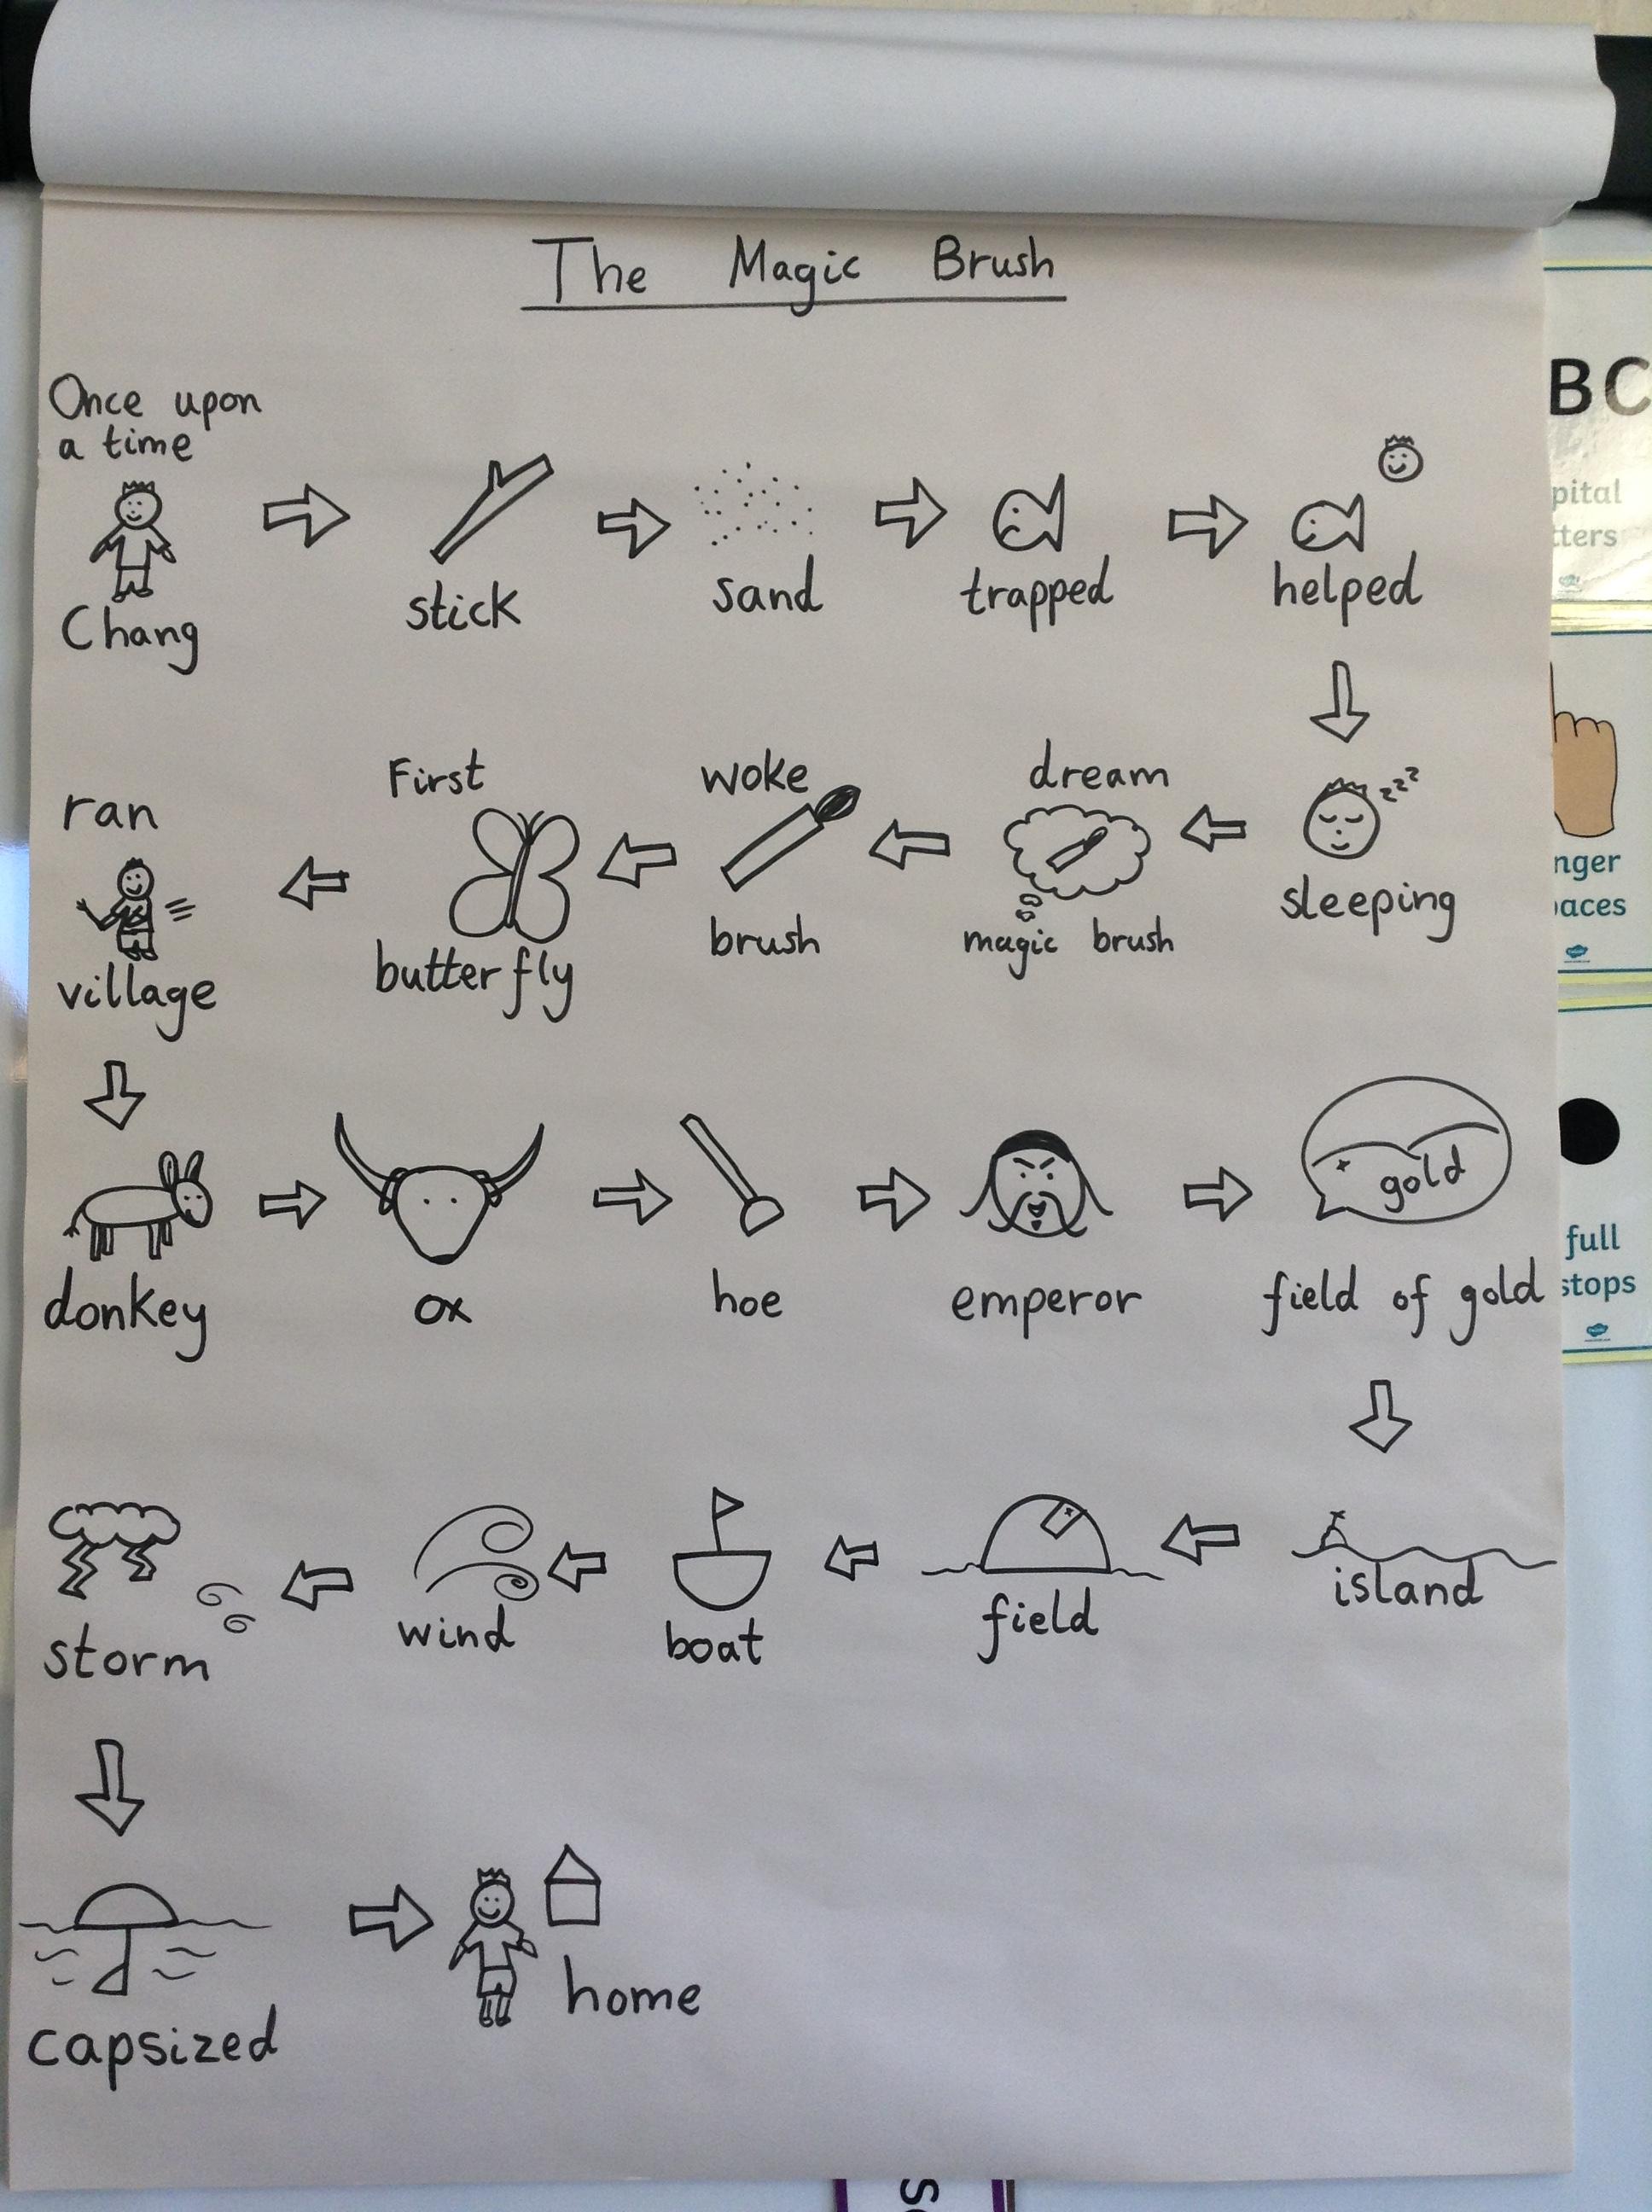 The Magic Brush
Once upon
a time
Chang
stick
sand
trapped
helped
zzz
sleeping
dream
magic brush
woke
brush
First
butterfly
ran
village
donkey
ox
hoe
emperor
gold
field of gold
island
field
boat
wind
storm
capsized
home
BC
pital
tters
nger
paces
full
stops